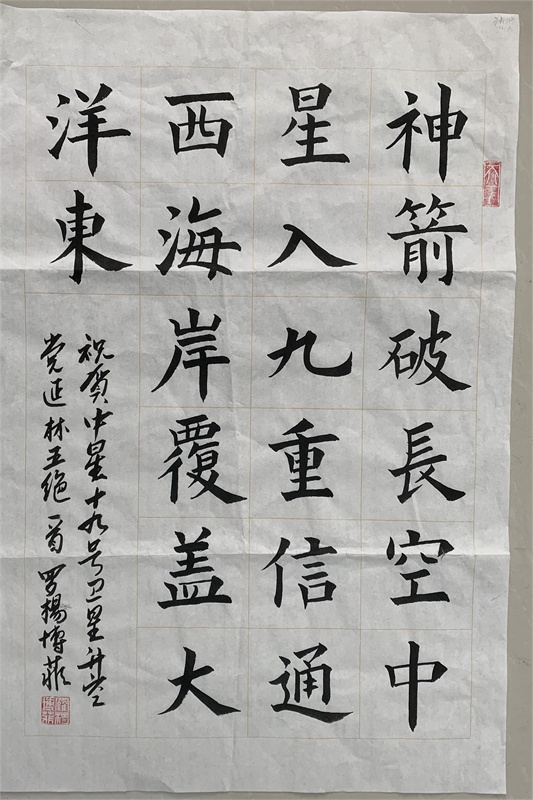 神箭破長空中
星入九重信通
西海岸覆盖大
洋東
祝贺中星十九号卫星升空
党延林五绝一首 罗楊博菲